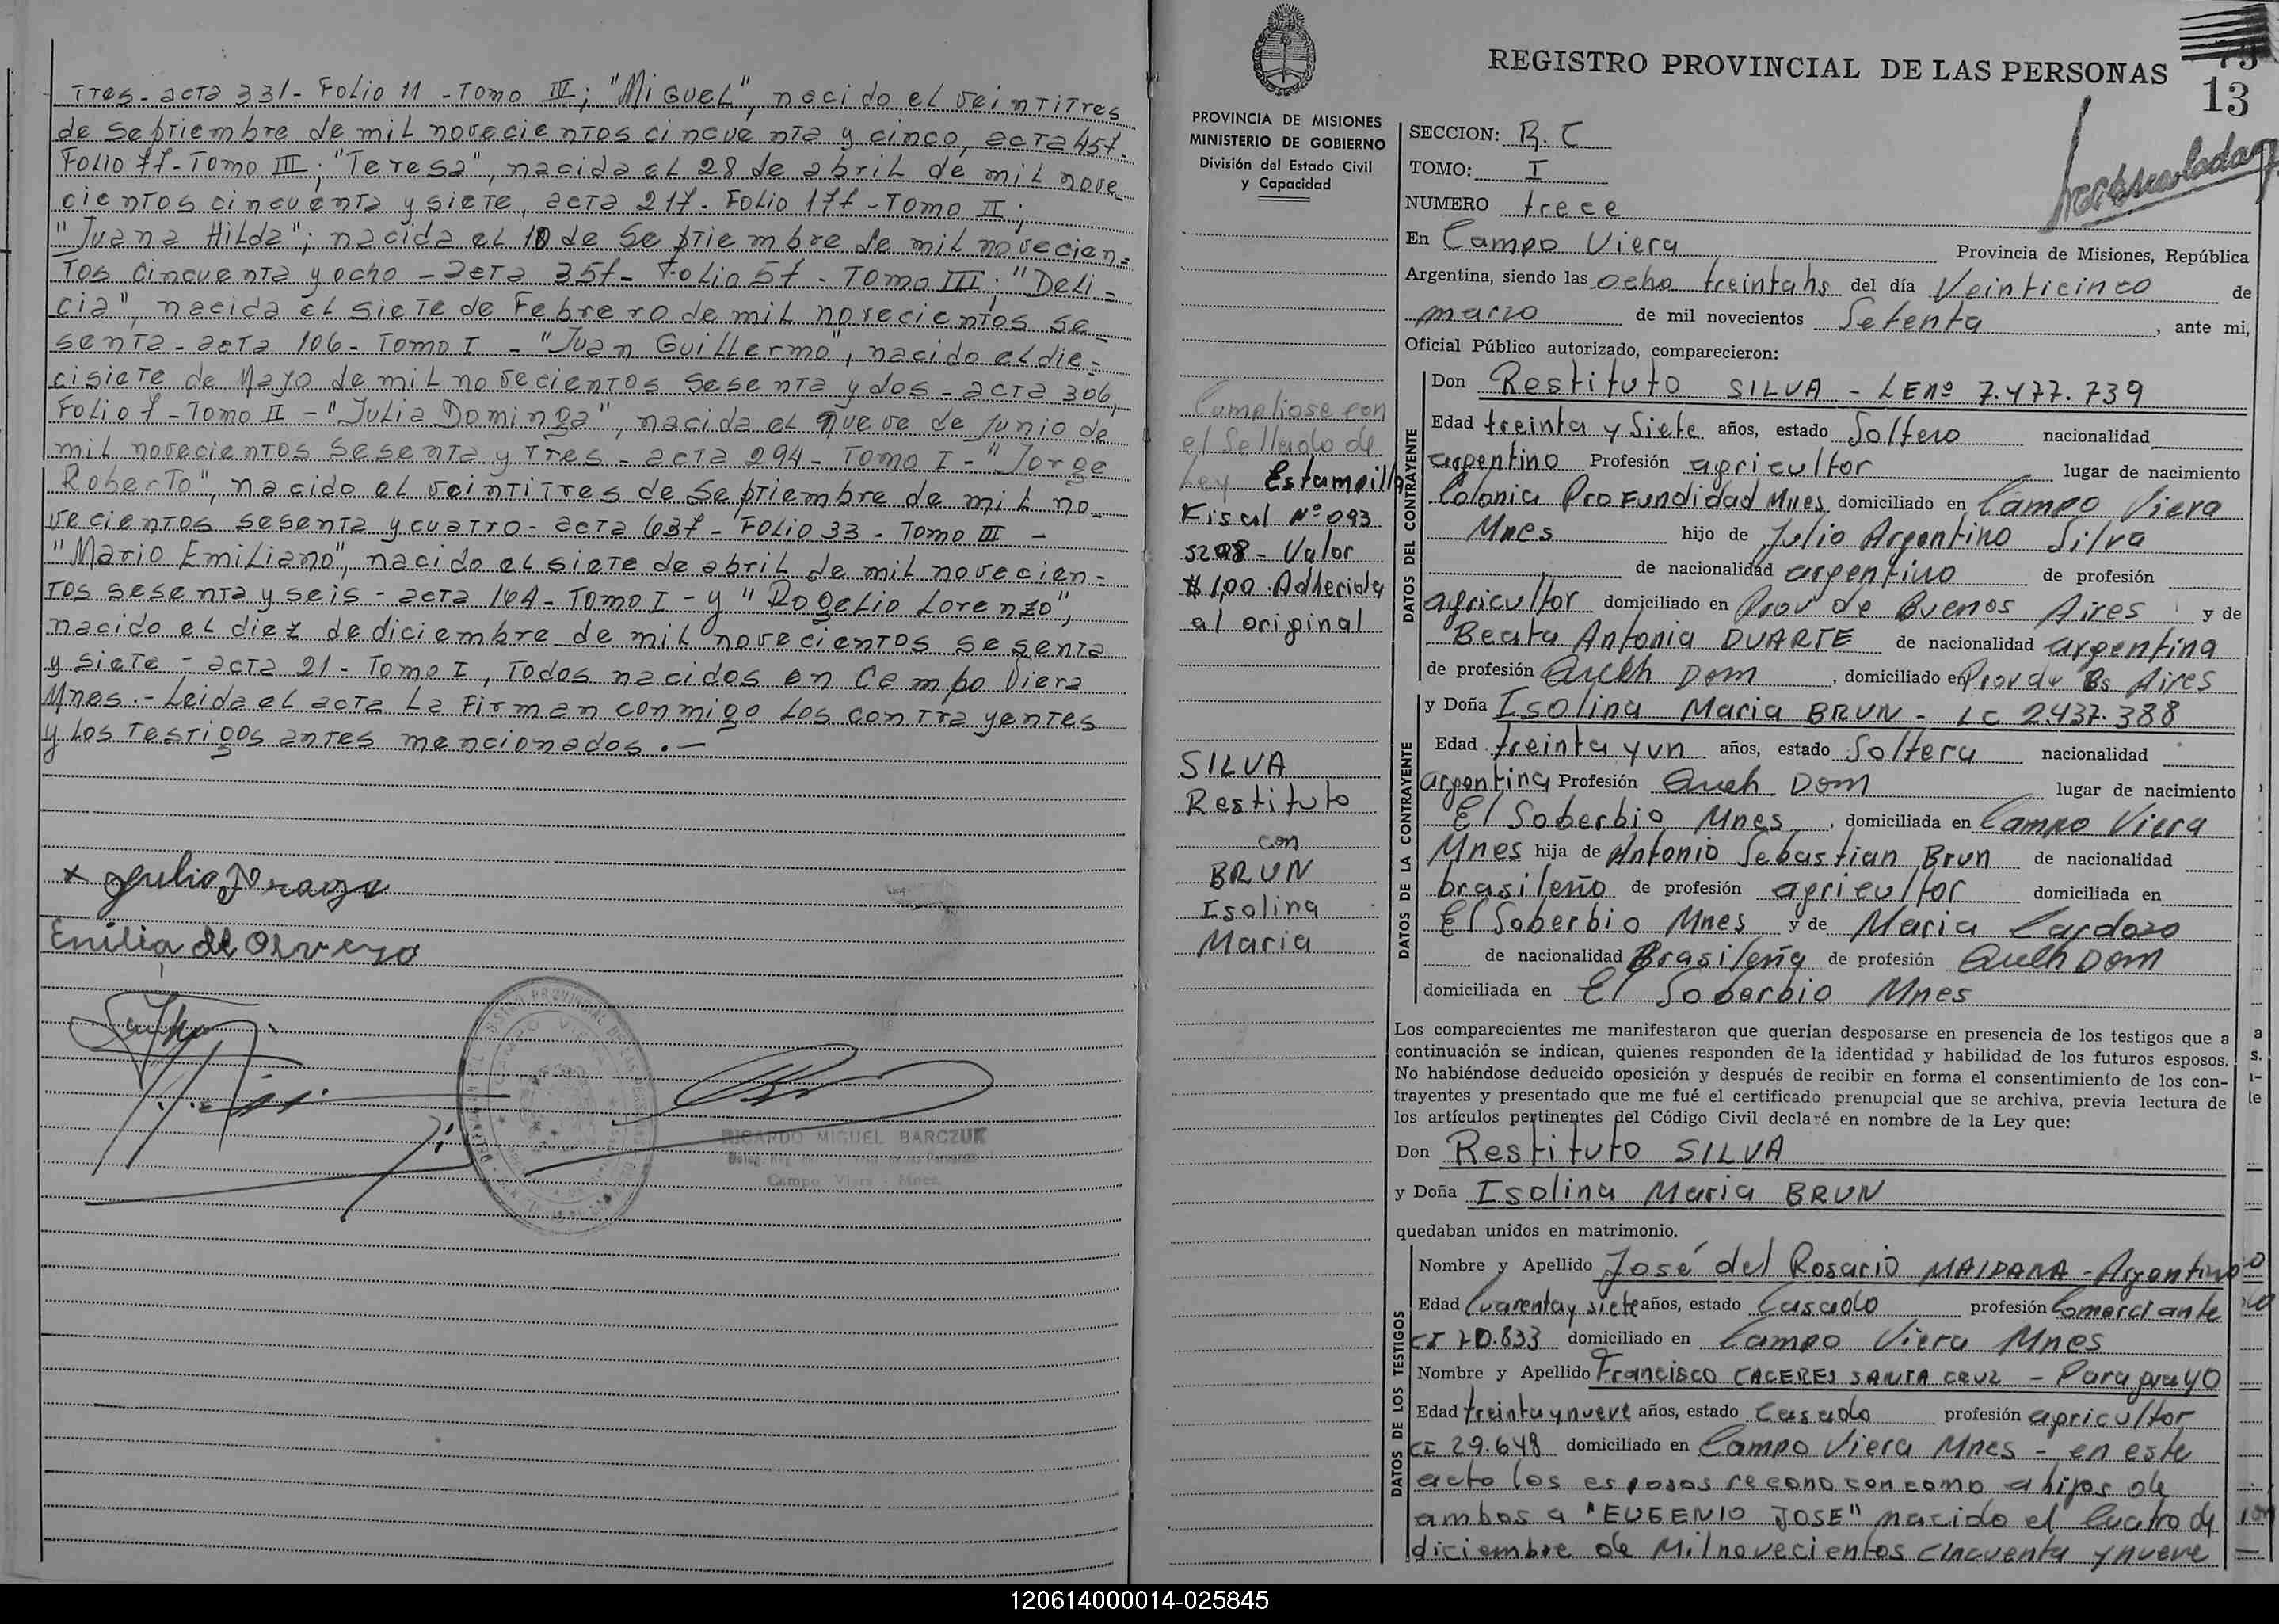 Tres - acta 331 - Folio 11 - Tomo IV; "Miguel", nacido el veintitres
de septiembre de mil novecientos cincuenta y cinco, acta 457 -
Folio 77 - Tomo III; "Teresa", nacida el 28 de abril de mil nove
cientos cincuenta y siete, acta 217 - Folio 177 - Tomo II;
"Juana Hilda"; nacida el 10 de septiembre de mil novecien=
tos cincuenta y ocho - acta 357 - Folio 57 - Tomo III; "Deli=
cia", nacida el siete de Febrero de mil novecientos se
senta - acta 106 - Tomo I - "Juan Guillermo", nacido el die=
cisiete de Mayo de mil novecientos sesenta y dos - acta 306,
Folio 7 - Tomo II - "Julia Dominga", nacida el nueve de Junio de
mil novecientos sesenta y tres - acta 294 - Tomo I - "Jorge
Roberto", nacido el veintitres de septiembre de mil no-
vecientos sesenta y cuatro - acta 637 - Folio 33 - Tomo III -
"Mario Emiliano", nacido el siete de abril de mil novecien=
tos sesenta y seis - acta 164 - Tomo I - y "Rogelio Lorenzo",
nacido el diez de diciembre de mil novecientos sesenta
y siete - acta 21 - Tomo I, Todos nacidos en Campo Viera
Mnes.- Leida el acta La Firman conmigo Los contrayentes
y los testigos antes mencionados.-
RICARDO MIGUEL BARCZUK
Campo Viera - Mnes.
PROVINCIA DE MISIONES
MINISTERIO DE GOBIERNO
División del Estado Civil
y Capacidad
Cumpliose con
el Sellado de
Ley Estampilla
Fiscal Nº 093
5298 - Valor
$ 1,00 Adherida
al original
SILVA
Restituto
con
BRUN
Isolina
Maria
REGISTRO PROVINCIAL DE LAS PERSONAS
13
SECCION: R. C
TOMO: I
NUMERO trece
En Campo Viera Provincia de Misiones, República
Argentina, siendo las ocho treinta hs del día Veinticinco de
marzo de mil novecientos Setenta, ante mi,
Oficial Público autorizado, comparecieron:
DATOS DEL CONTRAYENTE
Don Restituto SILVA - LE nº 7.477.739
Edad treinta y Siete años, estado Soltero nacionalidad
argentino Profesión agricultor lugar de nacimiento
Colonia Profundidad Mnes domiciliado en Campo Viera
Mnes hijo de Julio Argentino Silva
de nacionalidad argentino de profesión
agricultor domiciliado en Prov de Buenos Aires y de
Beata Antonia DUARTE de nacionalidad argentina
de profesión Queh Dom, domiciliado en Prov de Bs Aires
DATOS DE LA CONTRAYENTE
y Doña Isolina Maria BRUN - LC 2.437.388
Edad treinta y un años, estado Soltera nacionalidad
argentina Profesión Queh Dom lugar de nacimiento
El Soberbio Mnes, domiciliada en Campo Viera
Mnes hija de Antonio Sebastian Brun de nacionalidad
brasileño de profesión agricultor domiciliada en
El Soberbio Mnes y de Maria Cardozo
de nacionalidad Brasileña de profesión Queh Dom
domiciliada en El Soberbio Mnes
Los comparecientes me manifestaron que querían desposarse en presencia de los testigos que a
continuación se indican, quienes responden de la identidad y habilidad de los futuros esposos.
No habiéndose deducido oposición y después de recibir en forma el consentimiento de los con-
trayentes y presentado que me fué el certificado prenupcial que se archiva, previa lectura de
los artículos pertinentes del Código Civil declaré en nombre de la Ley que:
Don Restituto SILVA
y Doña Isolina Maria BRUN
quedaban unidos en matrimonio.
DATOS DE LOS TESTIGOS
Nombre y Apellido José del Rosario MAIDANA - Argentino
Edad Cuarenta y siete años, estado Casado profesión Comerciante
CI 70.833 domiciliado en Campo Viera Mnes
Nombre y Apellido Francisco CACERES SANTA CRUZ - Paraguayo
Edad treinta y nueve años, estado Casado profesión agricultor
CI 29.648 domiciliado en Campo Viera Mnes - en este
acto los esposos reconocen como a hijos de
ambos a "EUGENIO JOSE" nacido el Cuatro de
diciembre de Mil novecientos cincuenta y nueve
120614000014-025845